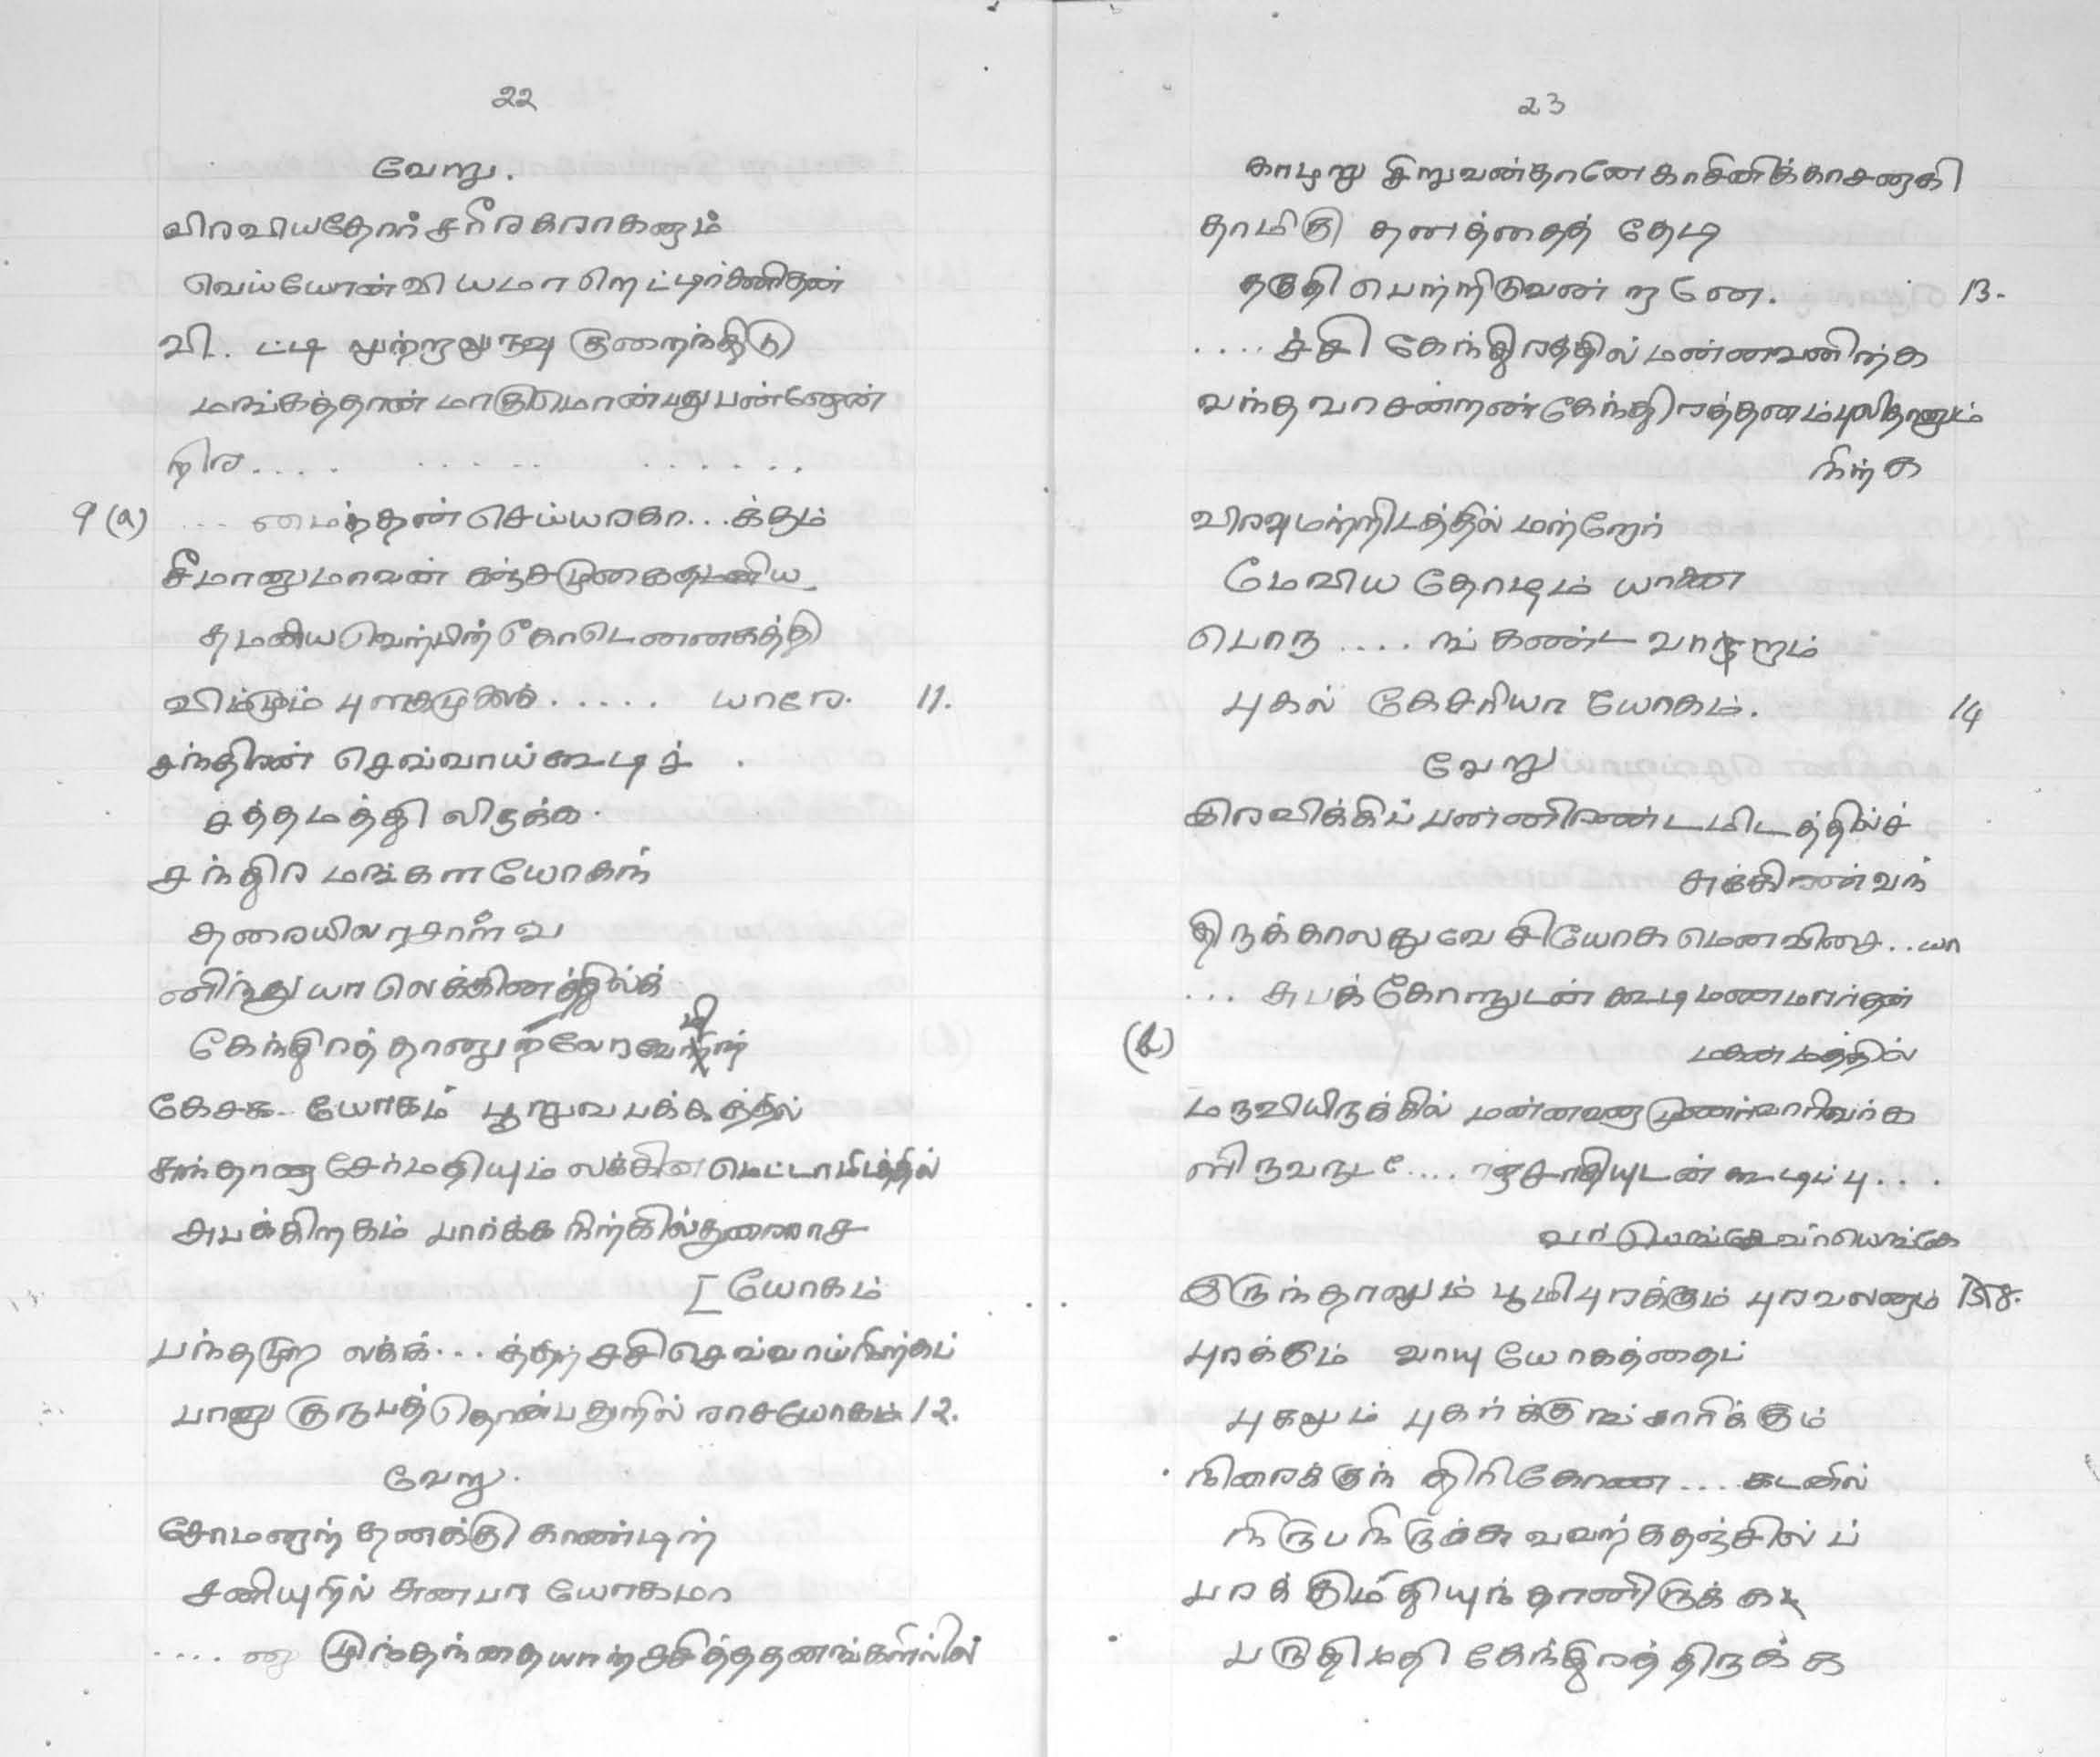 22
வேறு.
விரவியதோர் சரீரகாரகனும்
வெய்யோன் வியமா றெட்டிற்சனிதன்
வி. ட்டி லுற்றலுருவு குறைந்திடு
மங்கத்தான் மாகுமொண்புது பண்ணேன்
றிர.... ..... .......
9 (a) ... மைந்தன் செய்யரகா...க்தும்
சீமானுமாவன்
தமனிய வெற்பிற் கோடெனனகத்தி
விம்மும் புளகமுலை ..... யாரே. 11.
சந்திரன் செவ்வாய்கூடிச்
சத்தமத்தி லிருக்க
சந்திர மங்கள யோகந்
தரையிலரசாள்வ
னிந்து யா லெக்கினத்தில்க்
கேந்திரத்தானு
கேசக யோகம் பூறுவபக்கத்தில்
சந்தானு சேர்மதியும் லக்கின மெட்டாமிடத்தில்
சுபக்கிறகம் பார்க்க நிற்கில்துரைராச
[யோகம்
பந்தமுற லக்க்...த்தற் சசி செவ்வாய்நிற்கப்
பானு குருபத் தொண்பதுறில் ராசயோகம் 12.
வேறு.
சோமனுந் தனக்கு காண்டிற்
சனியுறில் சுனபா யோகமா
.... னு முந்தந்தையாற்றசித்த தனங்களில்லி
23
காழறு சிறுவன்தானே காசினிக்காசனாகி
தாமிகு தனத்தைத் தேடி
தகுதி பெற்றிடுவன் றானே. 13.
....ச்சி கேந்திரத்தில் மன்னவனிற்க
வந்த வாசன்றன் கேந்திரத்தனம்புலிதானும்
நிற்க
விரவுமற்றிடத்தில் மற்றோர்
மேவிய தோடிம் யானை
பொரு .... ங் கண்ட வாறாம்
புகல் கேசரியா யோகம். 14
வேறு
இரவிக்கிப் பன்னிரண்டாமிடத்தில்ச்
சுக்கிரன்வந்
திருக்காலது வேசியோக மெனவிசை..யா
... சுபக் கோளுடன் கூடிமணமார்தன்
(b) மனைமத்தில்
மருவியிருக்கில் மன்னவனாமுணர்வாரிவர்க
ளிருவரு .... ரற் சாதியுடன் கூடிப்பு...
வர்யெங்கே
இருந்தாலும் பூமிபுரக்கும் புரவலனும்
புரக்கும் வாயு யோகத்தைப்
புகலும் புகர்க்குஞ் சாரிக்கும்
நிரைக்குந் திரிகோண .... கடனில்
நிருப நிருக்க வவற்கதஞ்சில்ப்
பரக்குமதியுந் தானிருக்க
பருதிமதி கேந்திரத்திருக்க